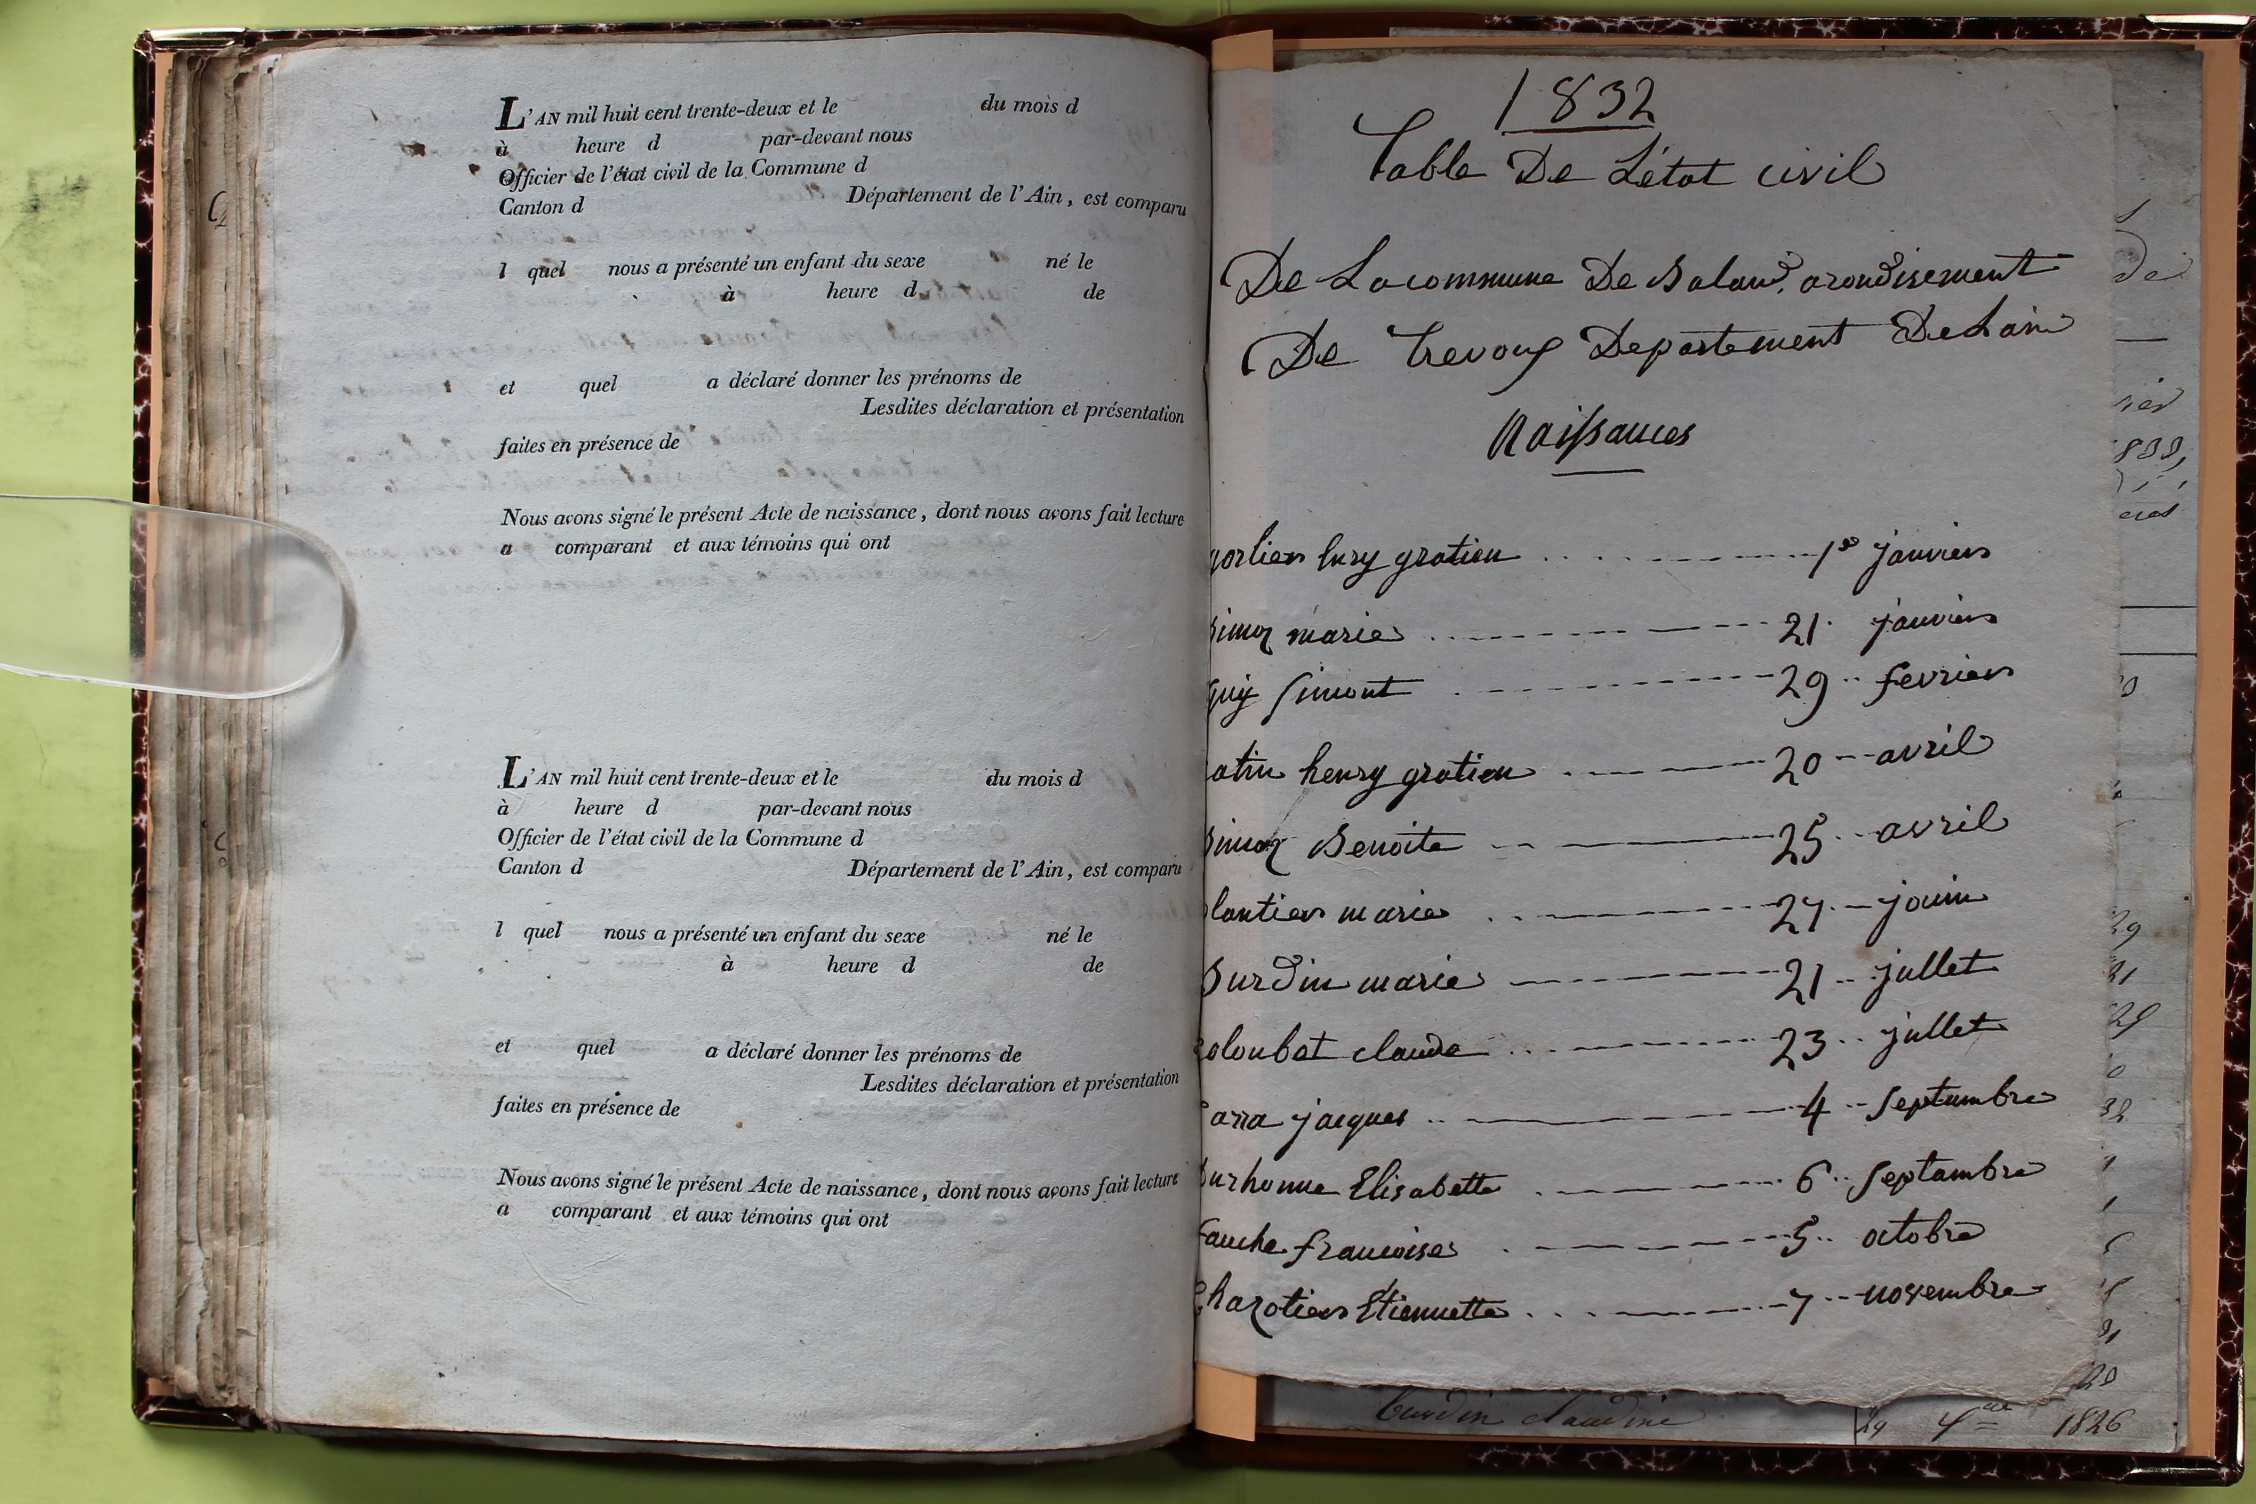 L'AN mil huit cent trente-deux et le du mois d
à heure d par-devant nous
Officier de l'état civil de la Commune d
Canton d Département de l'Ain, est comparu
l quel nous a présenté un enfant du sexe né le
à heure d de
et quel a déclaré donner les prénoms de
Lesdites déclaration et présentation
faites en présence de
Nous avons signé le présent Acte de naissance, dont nous avons fait lecture
a comparant et aux témoins qui ont
L'AN mil huit cent trente-deux et le du mois d
à heure d par-devant nous
Officier de l'état civil de la Commune d
Canton d Département de l'Ain, est comparu
l quel nous a présenté un enfant du sexe né le
à heure d de
et quel a déclaré donner les prénoms de
Lesdites déclaration et présentation
faites en présence de
Nous avons signé le présent Acte de naissance, dont nous avons fait lecture
a comparant et aux témoins qui ont
1832
Table De L'état civil
De La commune De arondisement
De Trevoux Departement De Lain
Naissances
gratien 1er janvier
marie 21 janvier
guy simont 29 fevrier
henry gratien 20 avril
Benoite 25 avril
lantier marie 27 jouin
Burdin marie 21 jullet
oloubat claude 23 jullet
arra jacques 4 septembre
urhonne Elisabette 6 septambre
fauche francoise 5 octobre
Charotier Etiennette 7 novembre
Burdin claudine 29 1826